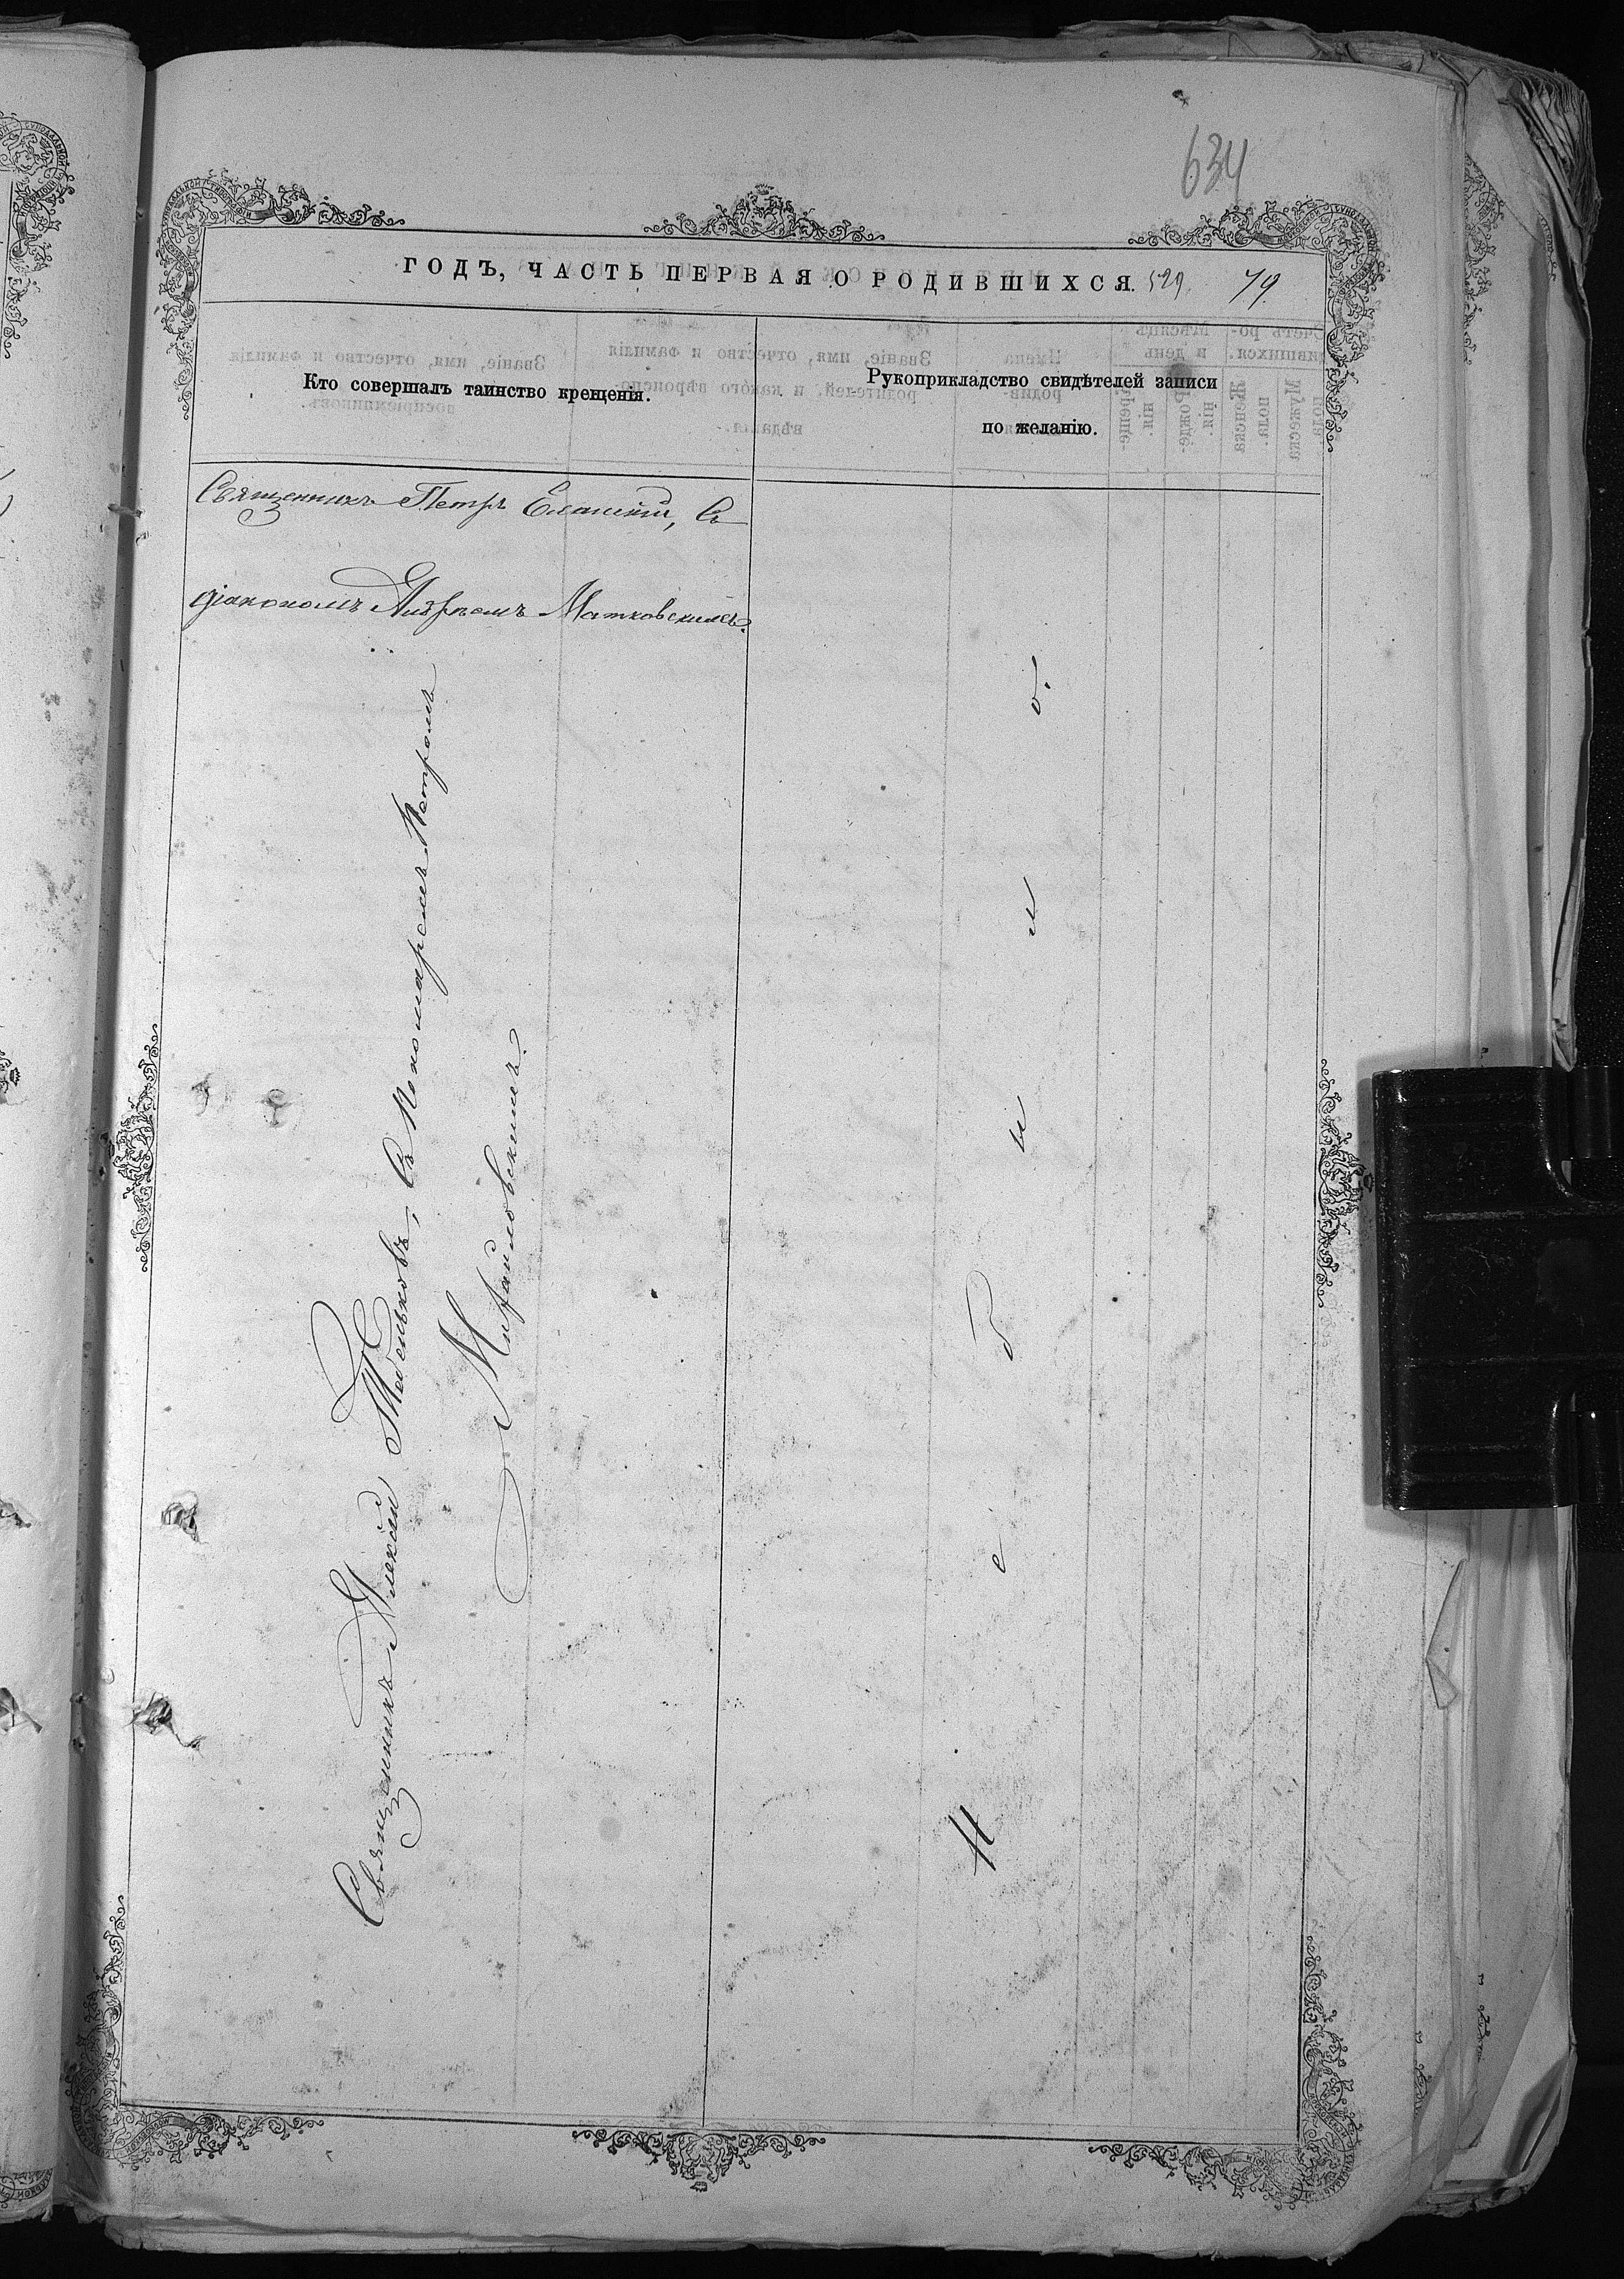 634
ГОДЪ, ЧАСТЬ ПЕРВАЯ О РОДИВШИХСЯ. 529 79.
Кто совершалъ таинство крещенія.
Рукоприкладство свидѣтелей записи
по желанію.
Священникъ Петръ Еланскій, Съ
діакономъ Андреемъ Матковскимъ.
Священникъ Алексѣй Маньковъ, Съ Пономаремъ Петромъ
Михайловскимъ.
Н е б ы л о.